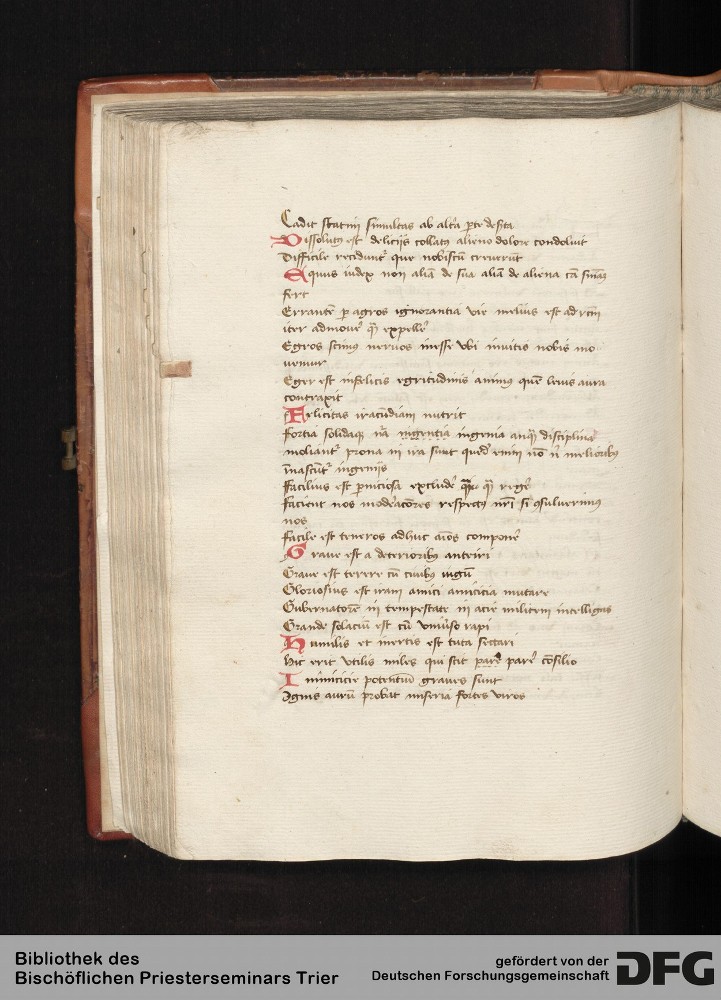 Cadit statim simultas ab altera parte deserta
Dissolutus est deliciis collatus alieno dolore condoluit
Difficile recidunt que nobiscum creverunt
Equus iudex non aliam de sua aliam de aliena causa
fert
Errantem per agros ignorantia vie melius est ad rectum
iter admovere quam expellere
Egros scimus nervos inesse ubi invitis nobis mo
ventur
Eger est infelicis egritudinis animus quem levis aura
contraxit
Felicitas iracundiam nutrit
Fortia solidaque natura ingentia ingenia anteque disciplina
moliantur prona in ira sunt quedam enim non nisi melioribus
innascuntur ingeniis
Facilius est perniciosa excludere quam regere
Facient nos moderatiores respectus nostri si consuluerimus
nos
Facile est teneros adhuc animos componere
Grave est a deterioribus anteiri
Grave est terere cum civibus iugum
Gloriosius est iram amici amicicia mutare
Gubernatorem in tempestate in acie militem intelligas
Grande solacium est cum universo rapi
Humilis et inertis est tuta sectari
Hic erit utilis miles qui scit parere consilio
Inimicicie potentum graves sunt
Ignis aurum probat miseria fortes viros
Bibliothek des
Bischöflichen Priesterseminars Trier
gefördert von der
Deutschen Forschungsgemeinschaft
DFG